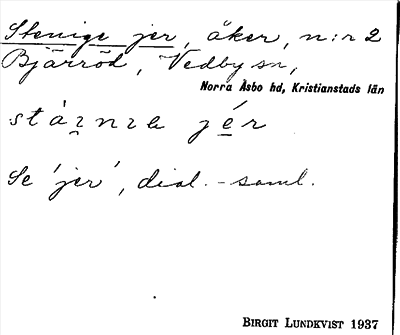 Stenige jer, åker, n:r 2
Bjärröd, Vedby sn,
Norra Åsbo hd, Kristianstads län
jér
Se 'jer', dial.-saml.
BIRGIT LUNDKVIST 1937